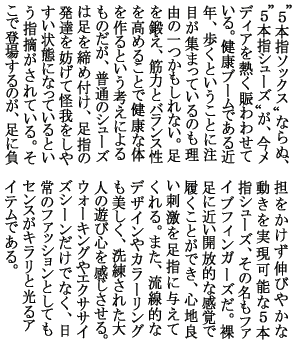 ”５本指ソックス“ならぬ、
”５本指シューズ“が、今メ
ディアを熱く賑わわせて
いる。健康ブームである近
年、歩くということに注
目が集まっているのも理
由の一つかもしれない。足
を鍛え、筋力とバランス性
を高めることで健康な体
を作るという考えによる
ものだが、普通のシューズ
は足を締め付け、足指の
発達を妨げて怪我をしや
すい状態になっているとい
う指摘がされている。そ
こで登場するのが、足に負
担をかけず伸びやかな
動きを実現可能な５本
指シューズ、その名もファ
イブフィンガーズだ。裸
足に近い開放的な感覚で
履くことができ、心地良
い刺激を足指に与えて
くれる。また、流線的な
デザインやカラーリング
も美しく、洗練された大
人の遊び心を感じさせる。
ウォーキングやエクササイ
ズシーンだけでなく、日
常のファッションとしても
センスがキラリと光るア
イテムである。